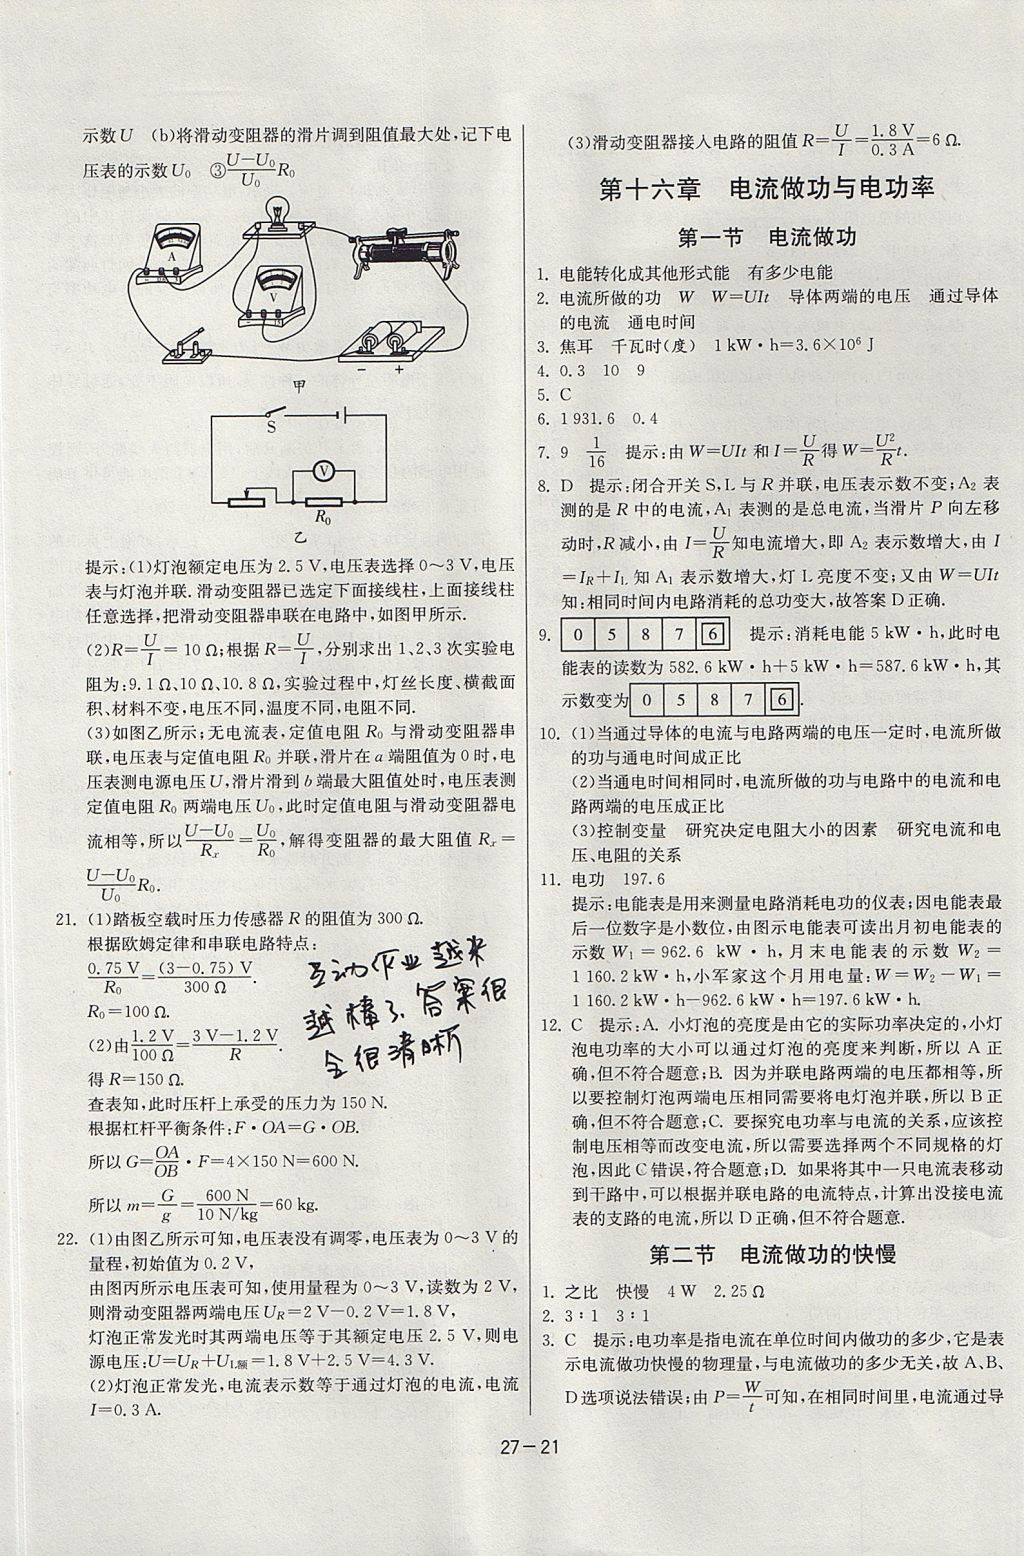 示数U　(b)将滑动变阻器的滑片调到阻值最大处,记下电
压表的示数U₀　③(U－U₀)/U₀ R₀
A
V
－　＋
甲
S
V
R₀
乙
提示:(1)灯泡额定电压为 2.5 V,电压表选择 0～3 V,电压
表与灯泡并联.滑动变阻器已选定下面接线柱,上面接线柱
任意选择,把滑动变阻器串联在电路中,如图甲所示.
(2)R＝U/I＝ 10 Ω;根据 R＝U/I,分别求出 1、2、3 次实验电
阻为:9.1 Ω、10 Ω、10.8 Ω,实验过程中,灯丝长度、横截面
积、材料不变,电压不同,温度不同,电阻不同.
(3)如图乙所示;无电流表,定值电阻 R₀ 与滑动变阻器串
联,电压表与定值电阻 R₀ 并联,滑片在 a 端阻值为 0 时,电
压表测电源电压 U,滑片滑到 b 端最大阻值处时,电压表测
定值电阻 R₀ 两端电压 U₀,此时定值电阻与滑动变阻器电
流相等,所以(U－U₀)/Rₓ＝U₀/R₀,解得变阻器的最大阻值 Rₓ＝
(U－U₀)/U₀ R₀.
21. (1)踏板空载时压力传感器 R 的阻值为 300 Ω.
根据欧姆定律和串联电路特点:
0.75 V/R₀＝(3－0.75) V/300 Ω.
R₀＝100 Ω.
(2)由1.2 V/100 Ω＝(3 V－1.2 V)/R.
得 R＝150 Ω.
查表知,此时压杆上承受的压力为 150 N.
根据杠杆平衡条件:F·OA＝G·OB.
所以 G＝OA/OB·F＝4×150 N＝600 N.
所以 m＝G/g＝600 N/10 N/kg＝60 kg.
互动作业越来
越棒了,答案很
全很清晰
22. (1)由图乙所示可知,电压表没有调零,电压表为 0～3 V 的
量程,初始值为 0.2 V,
由图丙所示电压表可知,使用量程为 0～3 V,读数为 2 V,
则滑动变阻器两端电压 U_R＝2 V－0.2 V＝1.8 V,
灯泡正常发光时其两端电压等于其额定电压 2.5 V,则电
源电压:U＝U_R＋U_L额＝1.8 V＋2.5 V＝4.3 V.
(2)灯泡正常发光,电流表示数等于通过灯泡的电流,电流
I＝0.3 A.
(3)滑动变阻器接入电路的阻值 R＝U/I＝1.8 V/0.3 A＝6 Ω.
第十六章　电流做功与电功率
第一节　电流做功
1. 电能转化成其他形式能　有多少电能
2. 电流所做的功　W　W＝UIt　导体两端的电压　通过导体
的电流　通电时间
3. 焦耳　千瓦时(度)　1 kW·h＝3.6×10⁶ J
4. 0.3　10　9
5. C
6. 1 931.6　0.4
7. 9　1/16　提示:由 W＝UIt 和 I＝U/R得 W＝U²/R t.
8. D　提示:闭合开关 S,L 与 R 并联,电压表示数不变;A₂ 表
测的是 R 中的电流,A₁ 表测的是总电流,当滑片 P 向左移
动时,R 减小,由 I＝U/R知电流增大,即 A₂ 表示数增大,由 I
＝I_R＋I_L 知 A₁ 表示数增大,灯 L 亮度不变;又由 W＝UIt
知:相同时间内电路消耗的总功变大,故答案 D 正确.
9. 0 5 8 7 6　提示:消耗电能 5 kW·h,此时电
能表的读数为 582.6 kW·h＋5 kW·h＝587.6 kW·h,其
示数变为 0 5 8 7 6.
10. (1)当通过导体的电流与电路两端的电压一定时,电流所做
的功与通电时间成正比
(2)当通电时间相同时,电流所做的功与电路中的电流和电
路两端的电压成正比
(3)控制变量　研究决定电阻大小的因素　研究电流和电
压、电阻的关系
11. 电功　197.6
提示:电能表是用来测量电路消耗电功的仪表;因电能表最
后一位数字是小数位,由图示电能表可读出月初电能表的
示数 W₁＝962.6 kW·h,月末电能表的示数 W₂＝
1 160.2 kW·h,小军家这个月用电量:W＝W₂－W₁＝
1 160.2 kW·h－962.6 kW·h＝197.6 kW·h.
12. C　提示:A. 小灯泡的亮度是由它的实际功率决定的,小灯
泡电功率的大小可以通过灯泡的亮度来判断,所以 A 正
确,但不符合题意;B. 因为并联电路两端的电压都相等,所
以要控制灯泡两端电压相同需要将电灯泡并联,所以 B 正
确,但不符合题意;C. 要探究电功率与电流的关系,应该控
制电压相等而改变电流,所以需要选择两个不同规格的灯
泡,因此 C 错误,符合题意;D. 如果将其中一只电流表移动
到干路中,可以根据并联电路的电流特点,计算出没接电流
表的支路的电流,所以 D 正确,但不符合题意.
第二节　电流做功的快慢
1. 之比　快慢　4 W　2.25 Ω
2. 3∶1　3∶1
3. C　提示:电功率是指电流在单位时间内做功的多少,它是表
示电流做功快慢的物理量,与电流做功的多少无关,故 A、B、
D 选项说法错误;由 P＝W/t可知,在相同时间里,电流通过导
27－21